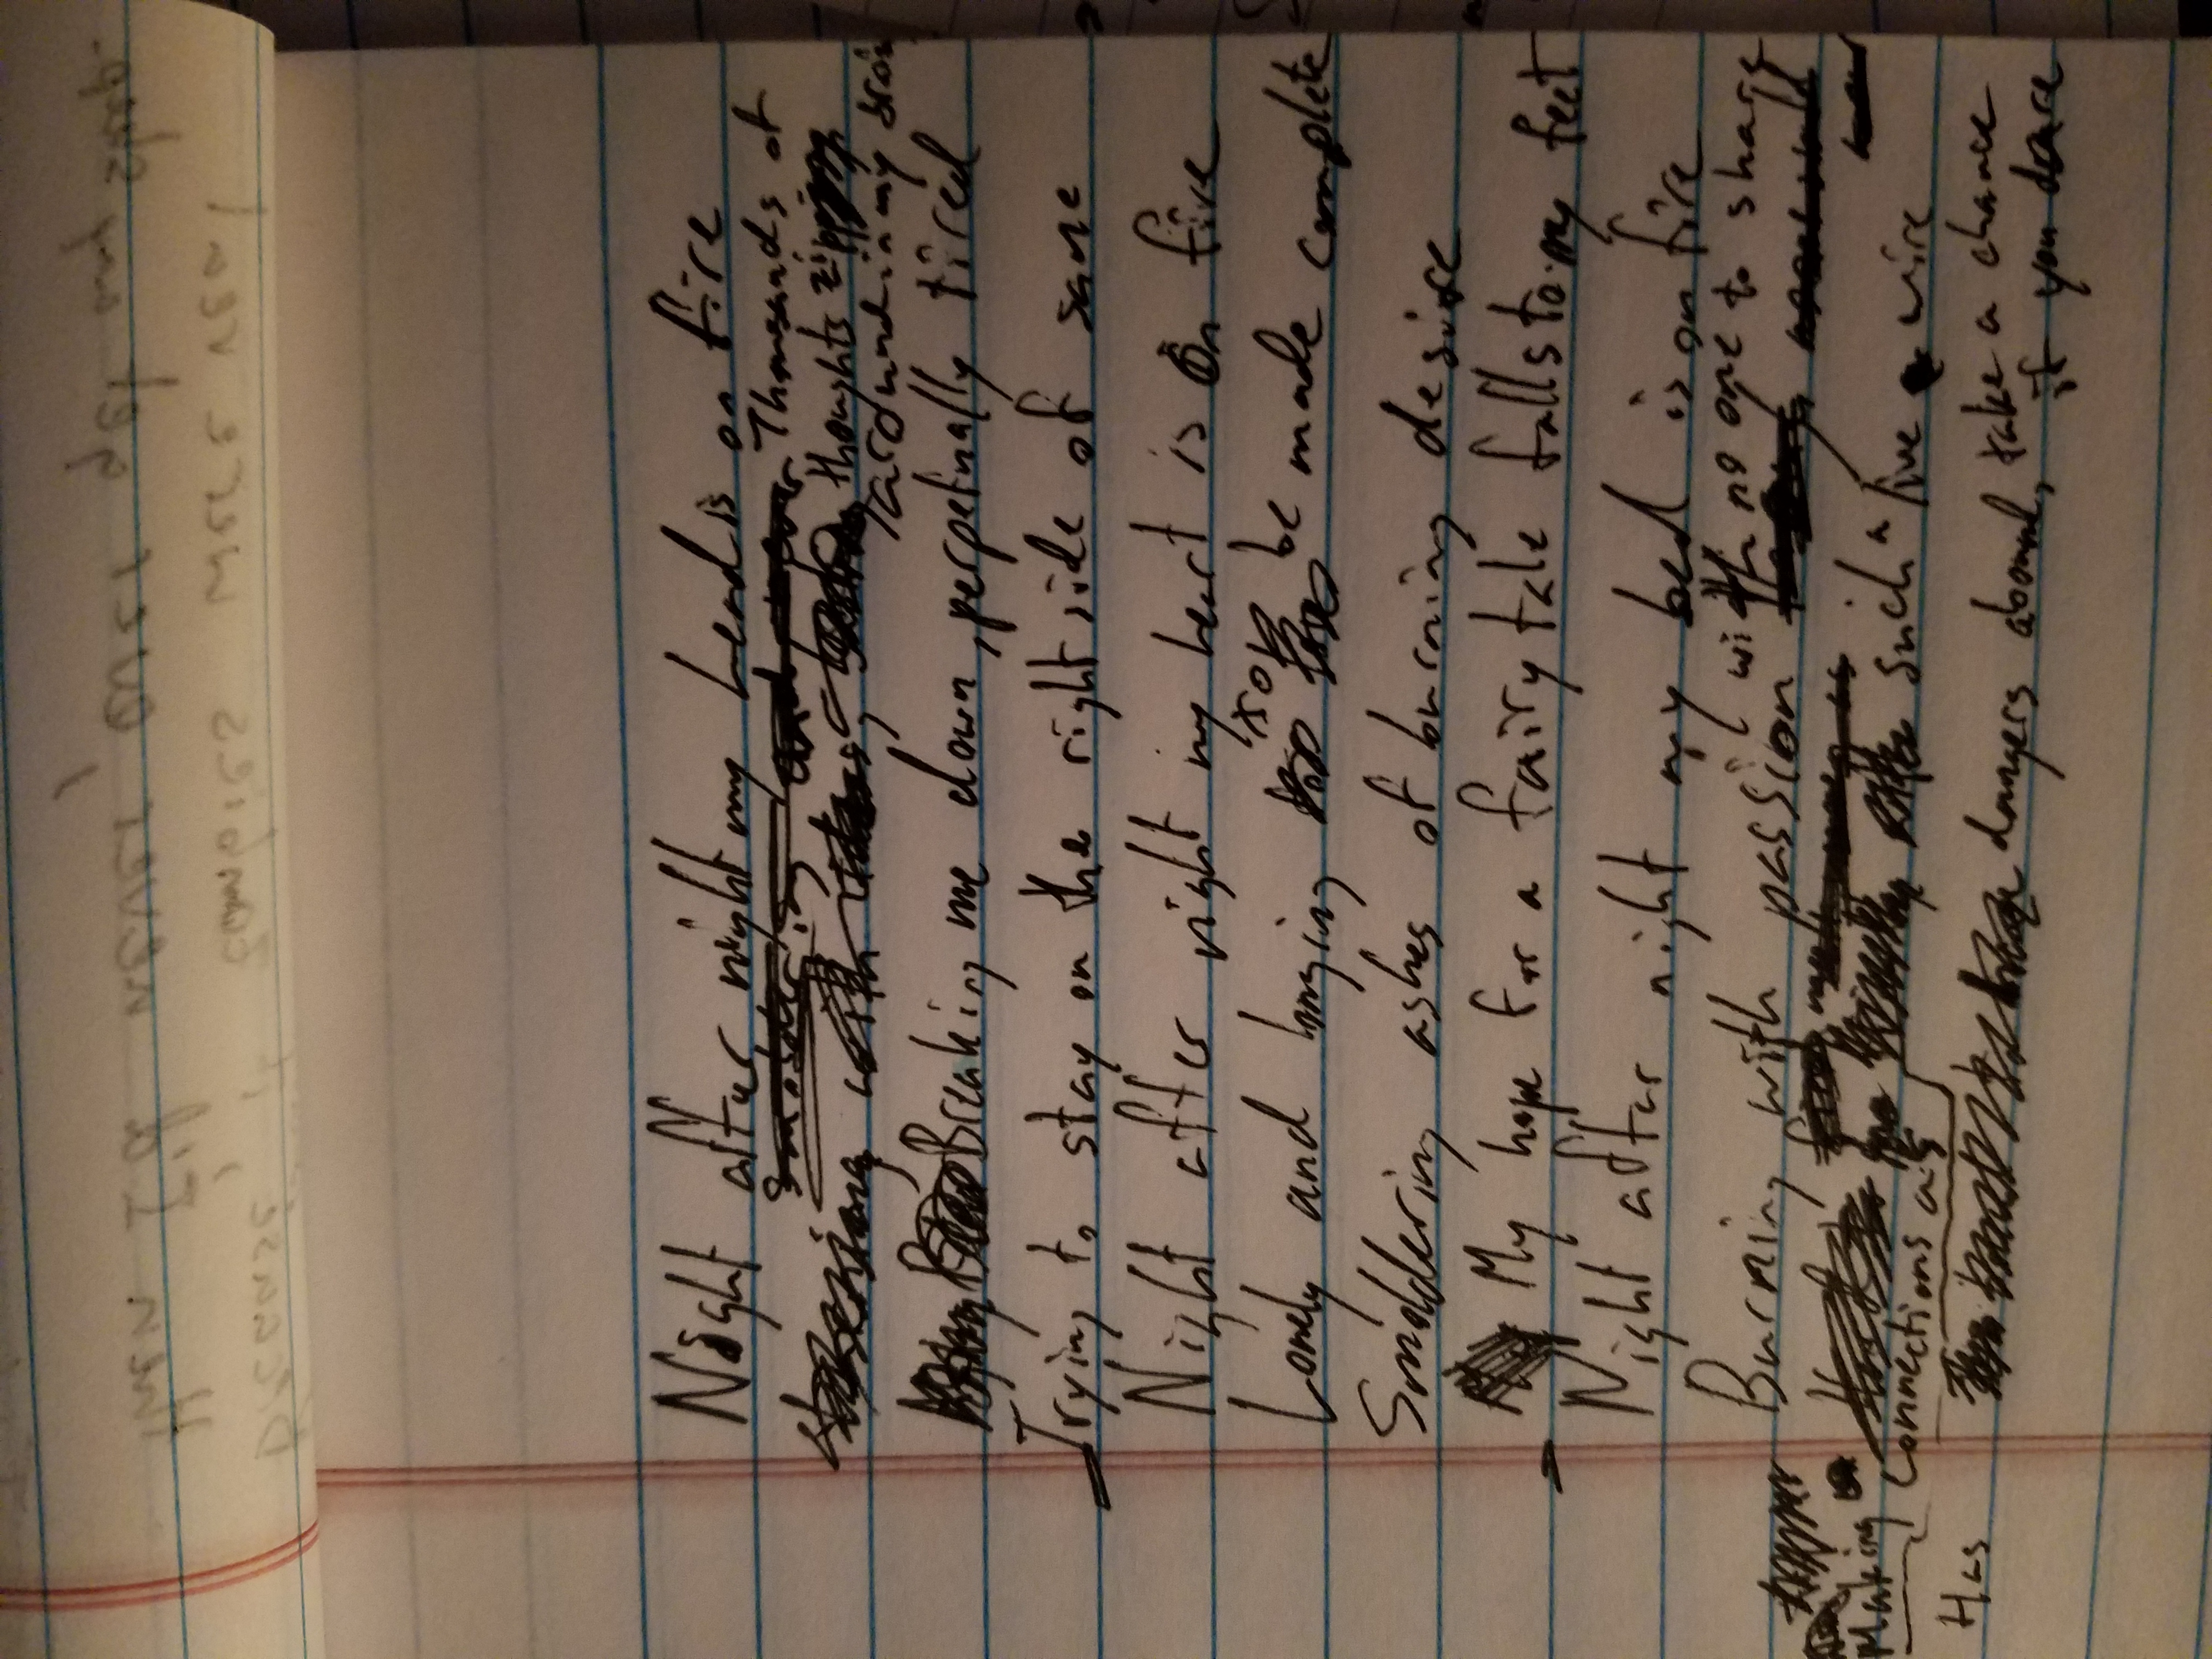 then I'd never, ever get any days
Because, if zombies were real
Night after night my head is on fire
Thousands of
thoughts zipping
around in my brain
Breaking me down, perpetually tired
Trying to stay on the right side of sane
Night after night my heart is on fire
Lonely and longing to be made complete
Smoldering ashes of burning desire
My hope for a fairytale falls to my feet
Night after night my bed is on fire
Burning with passion with no one to share
Making connections as such a live wire
Has dangers abound, take a chance
if you dare